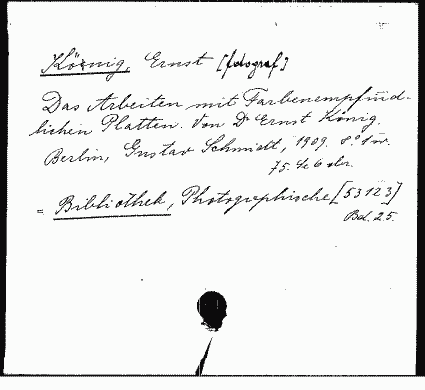 König, Ernst [fotograf]
Das Arbeiten mit Farbenempfind-
lichen Platten. Von Dr Ernst König.
Berlin, Gustav Schmidt, 1909. 8:o 1 w.
75. 6
= Bibliothek, Photographische [53123]
Bd. 25.